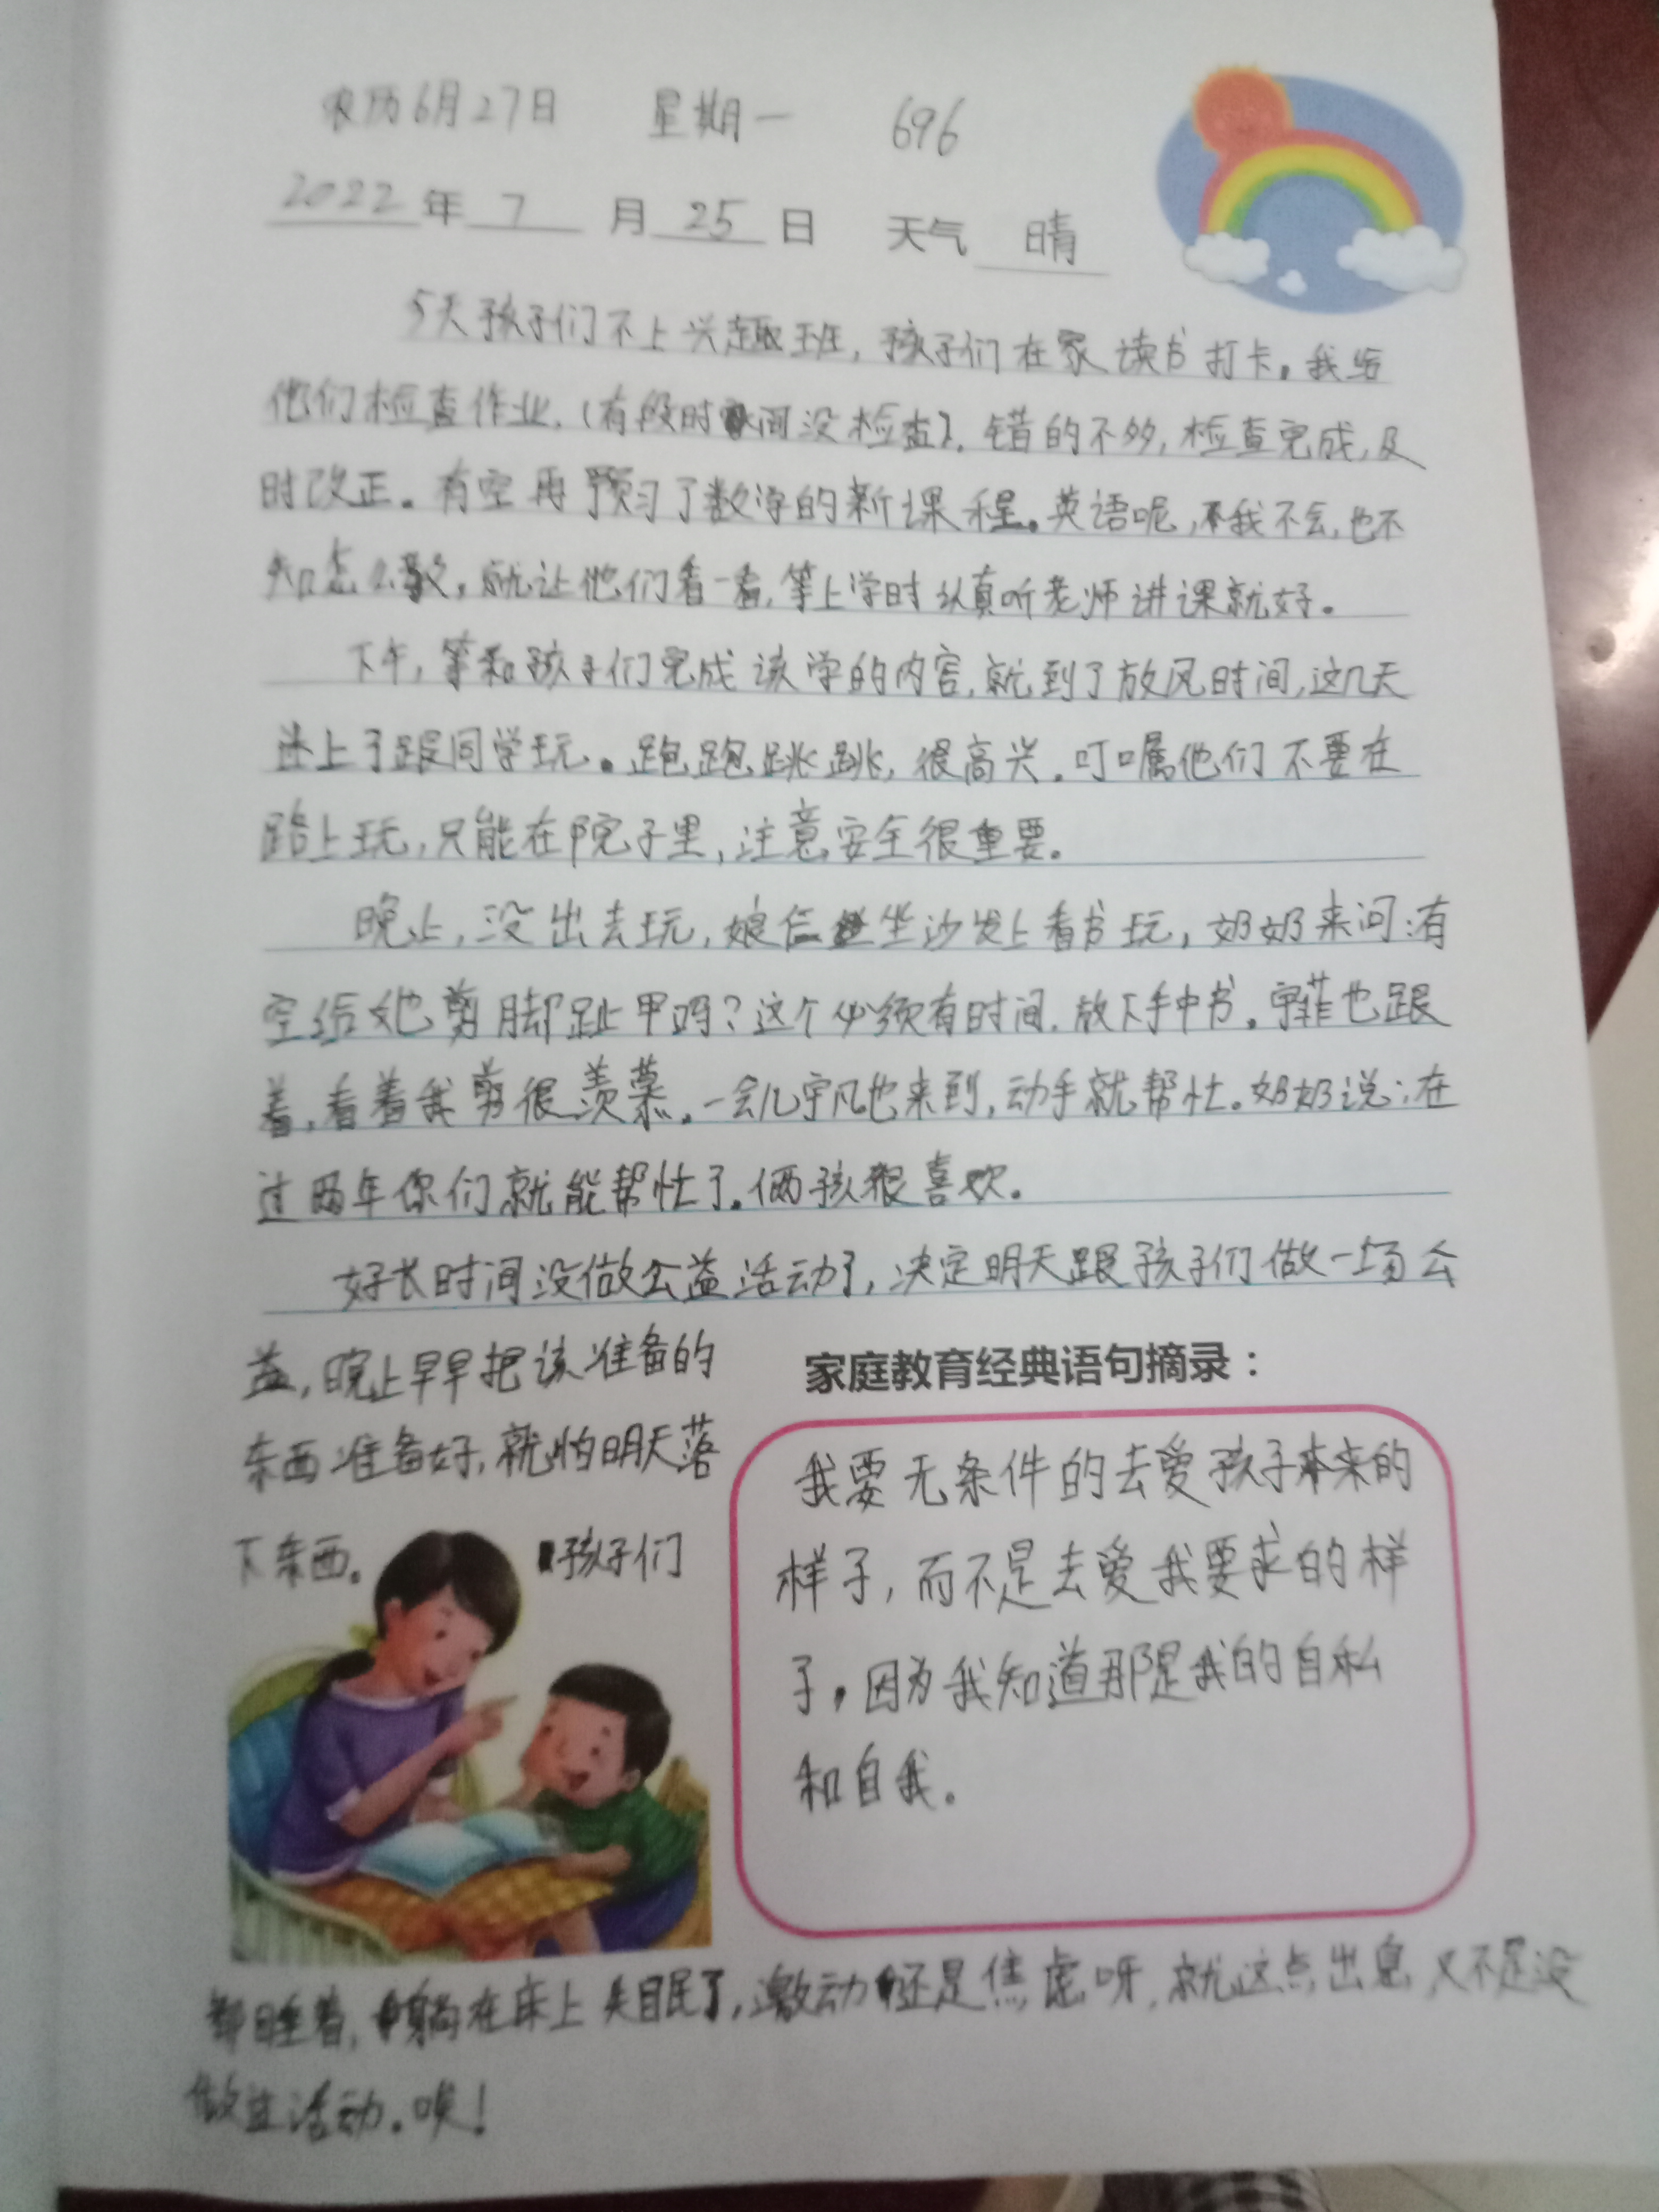 农历6月27日 星期一 696
2022年7月25日 天气 晴
天孩子们不上兴趣班,孩子们在家读书打卡。我给
他们检查作业,(有段时间没检查),错的不多,检查完成,及
时改正。有空再预习了数学的新课程。英语呢,我不会,也不
知怎么教,就让他们看一看,等上学时认真听老师讲课就好。
下午,等和孩子们完成该学的内容,就到了放风时间,这几天
迷上了跟同学玩。跑跑跳跳,很高兴。叮嘱他们不要在
路上玩,只能在院子里,注意安全很重要。
晚上,没出去玩,娘仨坐沙发上看书玩,奶奶来问:有
空给她剪脚趾甲吗?这个必须有时间,放下手中书。宇菲也跟
着,看着我剪很羡慕。一会儿宇凡也来到,动手就帮忙。奶奶说:在
过两年你们就能帮忙了。俩孩很喜欢。
好长时间没做公益活动了,决定明天跟孩子们做一场公
益,晚上早早把该准备的
东西准备好,就怕明天落
下东西。孩子们
家庭教育经典语句摘录:
我要无条件的去爱孩子本来的
样子,而不是去爱我要求的样
子,因为我知道那是我的自私
和自我。
都睡着,躺在床上失眠了,激动还是焦虑呀,就这点出息,又不是没
做过活动。唉!